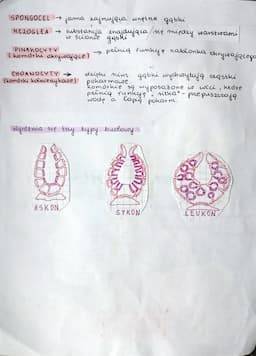 SPONGOCEL → jama zajmująca wnętrze gąbki
MEZOGLEA → substancja znajdująca się między warstwami
w ścianie gąbki
PINAKOCYTY → pełnią funkcję nabłonka okrywającego
(komórki okrywające)
CHOANOCYTY → dzięki nim gąbki wychwytują cząstki
(komórki kołnierzykowe) pokarmowe.
komórki są wyposażone w wici, które
pełnią funkcję "sitka" - przepuszczają
wodę a łapią pokarm.
wyróżnia się trzy typy budowy
ASKON
SYKON
LEUKON